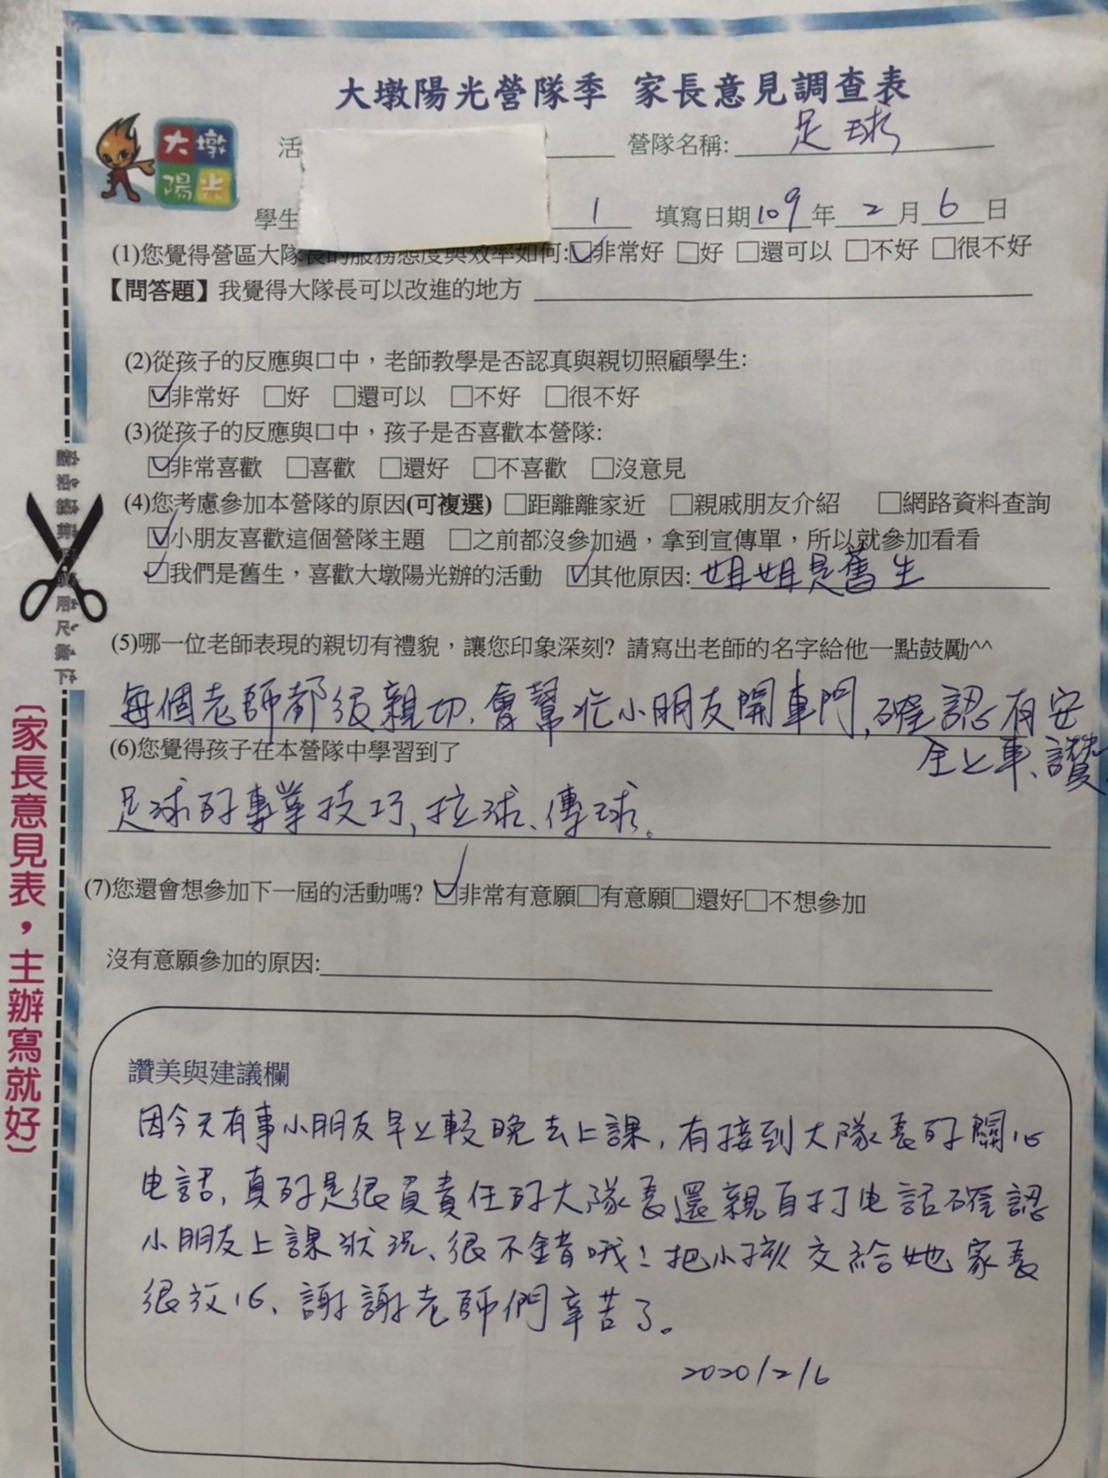 大墩陽光營隊季 家長意見調查表
大墩
陽光
活
營隊名稱: 足球
學生 1 填寫日期109年 2 月 6 日
(1)您覺得營區大隊長的服務態度與效率如何:☑非常好 □好 □還可以 □不好 □很不好
【問答題】我覺得大隊長可以改進的地方
(2)從孩子的反應與口中，老師教學是否認真與親切照顧學生:
☑非常好 □好 □還可以 □不好 □很不好
(3)從孩子的反應與口中，孩子是否喜歡本營隊:
☑非常喜歡 □喜歡 □還好 □不喜歡 □沒意見
(4)您考慮參加本營隊的原因(可複選) □距離離家近 □親戚朋友介紹 □網路資料查詢
☑小朋友喜歡這個營隊主題 □之前都沒參加過，拿到宣傳單，所以就參加看看
☑我們是舊生，喜歡大墩陽光辦的活動 ☑其他原因: 姐姐是舊生
(5)哪一位老師表現的親切有禮貌，讓您印象深刻? 請寫出老師的名字給他一點鼓勵^^
每個老師都很親切、會幫忙小朋友開車門,確認有安
全上車、讚
(6)您覺得孩子在本營隊中學習到了
足球的專業技巧,拉球、傳球。
(7)您還會想參加下一屆的活動嗎? ☑非常有意願□有意願□還好□不想參加
沒有意願參加的原因:
讚美與建議欄
因今天有事小朋友早上較晚去上課,有接到大隊長的關心
电話,真的是很負責任的大隊長還親自打电話確認
小朋友上課狀況、很不錯哦!把小孩交給她家長
很放心、謝謝老師們辛苦了。
2020/2/6
〔家長意見表，主辦寫就好〕